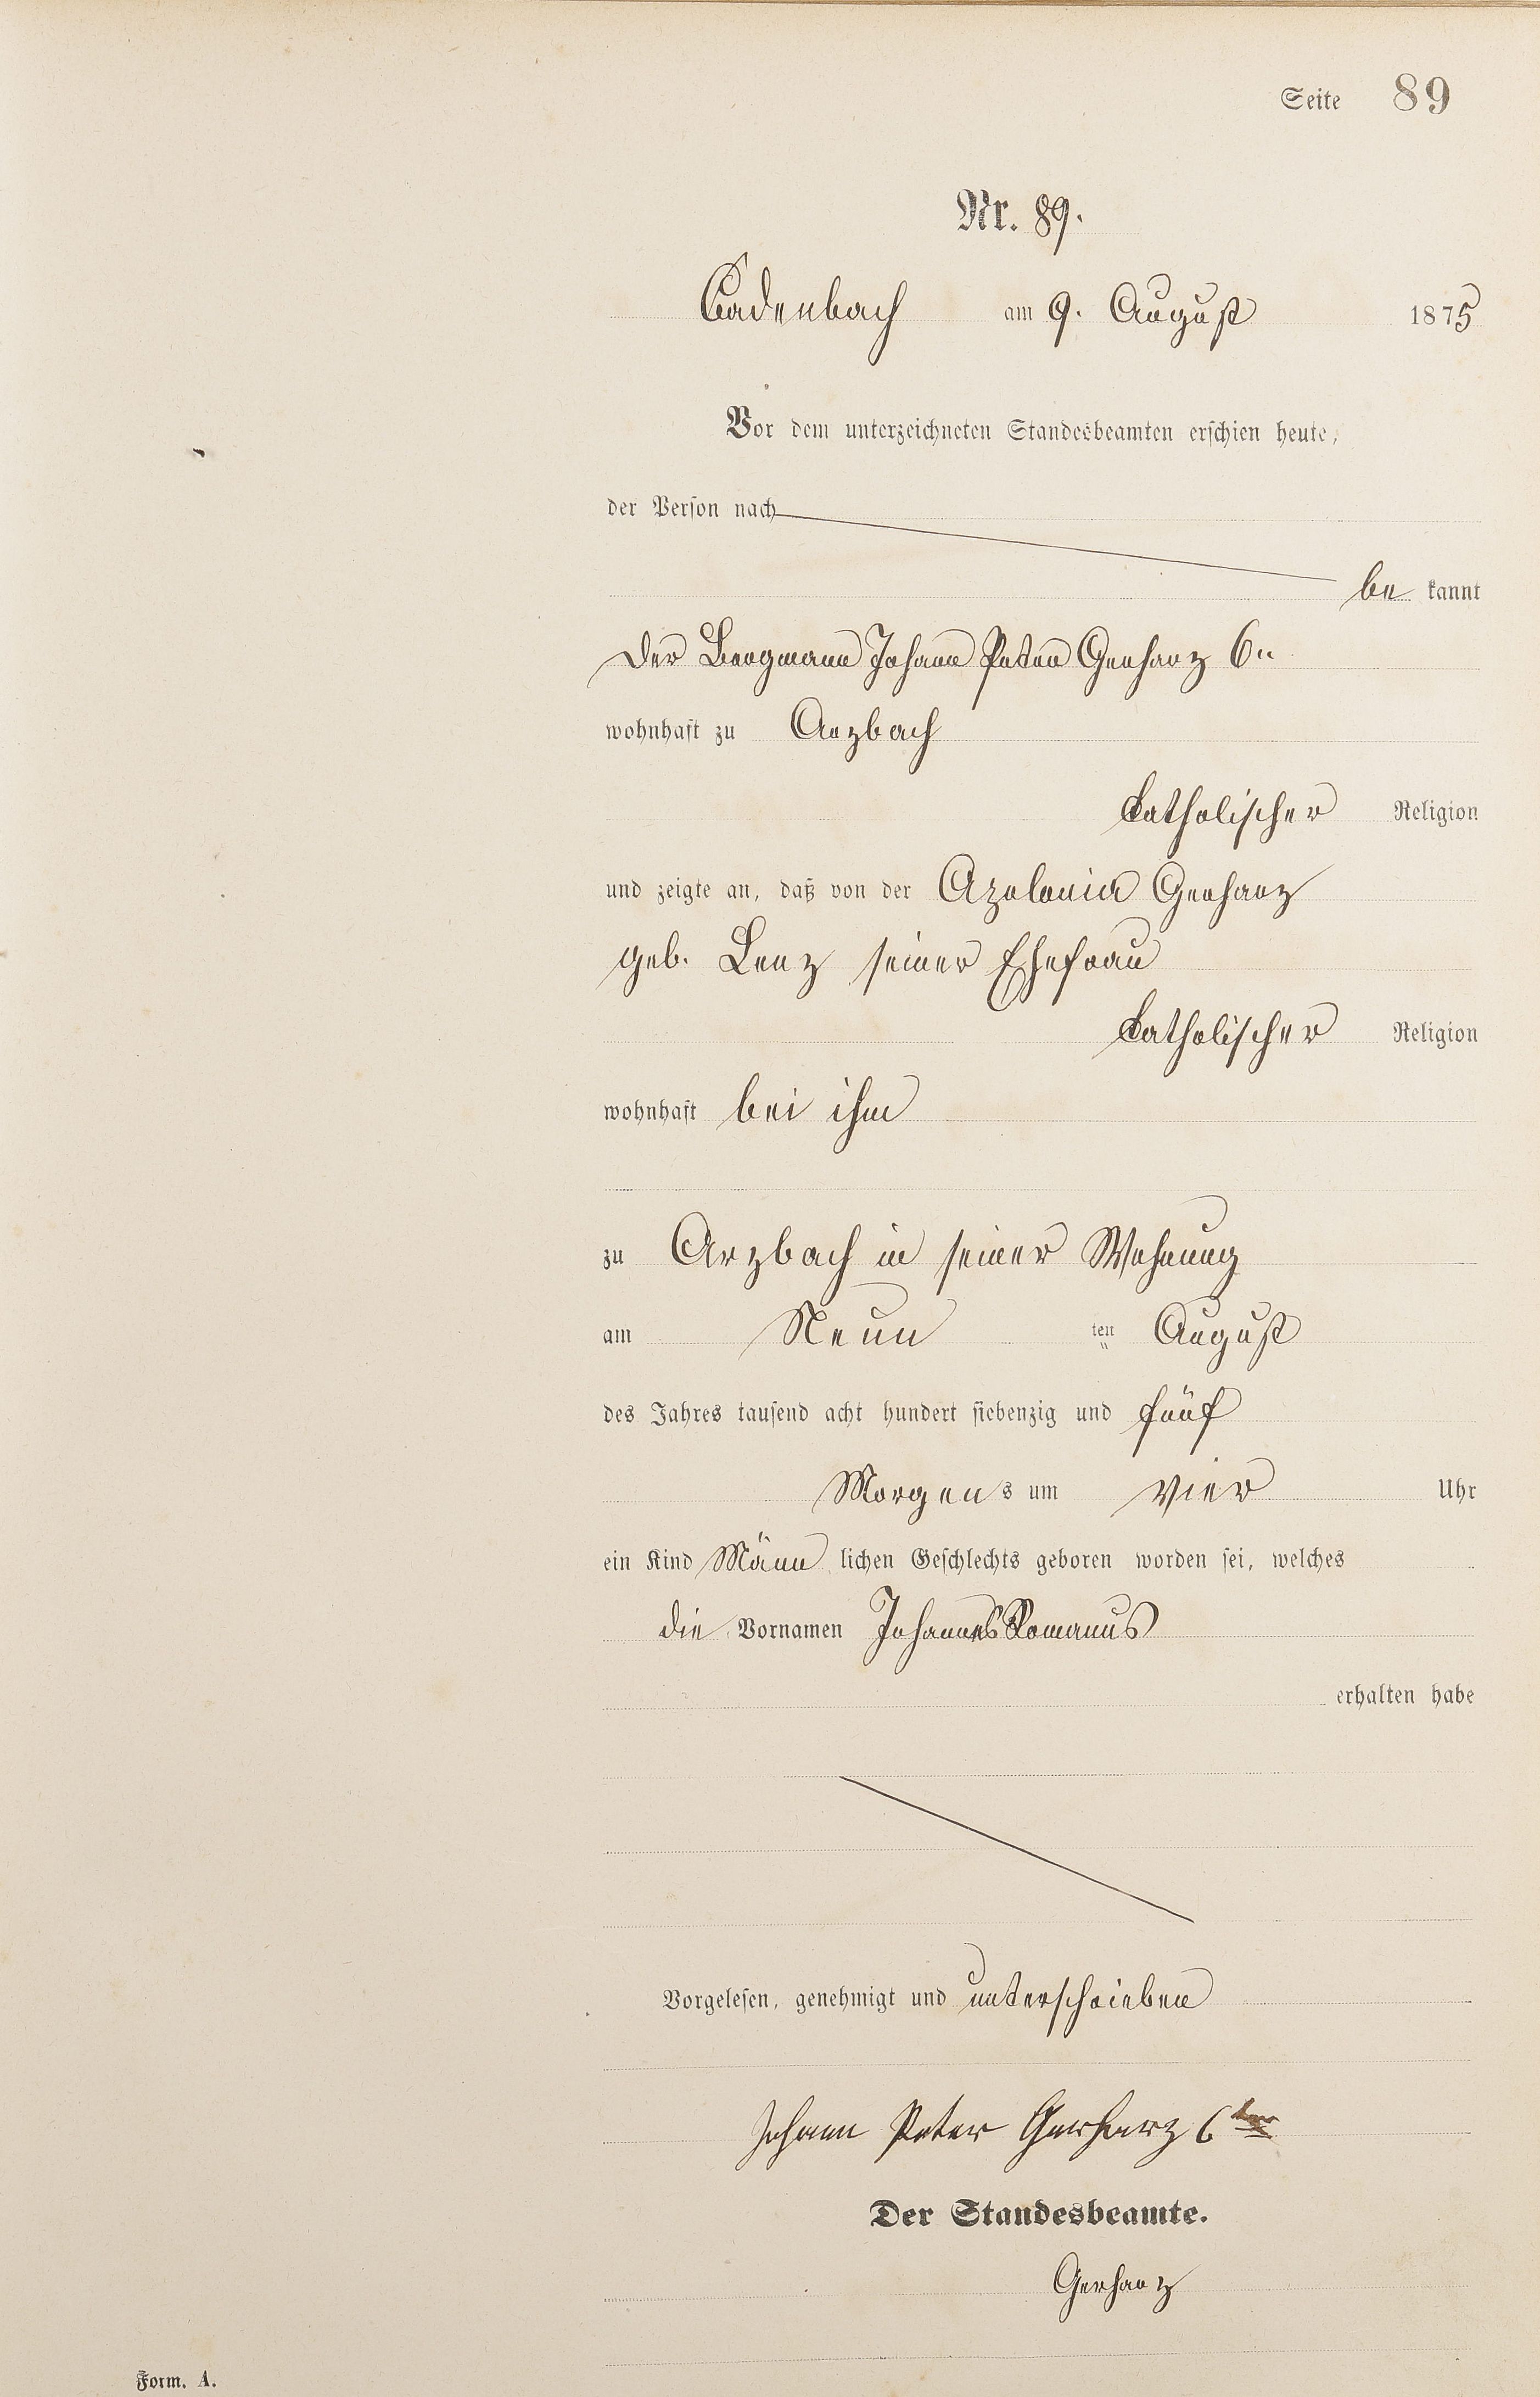 Seite 89
Nr. 89.
Cadenbach am 9. August 1875
Vor dem unterzeichneten Standesbeamten erschien heute,
der Person nach
be kannt
Der Bergmann Johann Peter Gerharz 6r
wohnhaft zu Arzbach
katholischer Religion
und zeigte an, daß von der Apolonia Gerharz
geb. Lenz seiner Ehefrau
katholischer Religion
wohnhaft bei ihm
zu Arzbach in seiner Wohnung
am Neun ten August
des Jahres tausend acht hundert siebenzig und fünf
Morgen s um vier Uhr
ein Kind Männ lichen Geschlechts geboren worden sei, welches
die Vornamen Johannes Romanus
erhalten habe
Vorgelesen, genehmigt und unterschrieben
Johann Peter Gerharz 6ter
Der Standesbeamte.
Gerharz
Form. A.